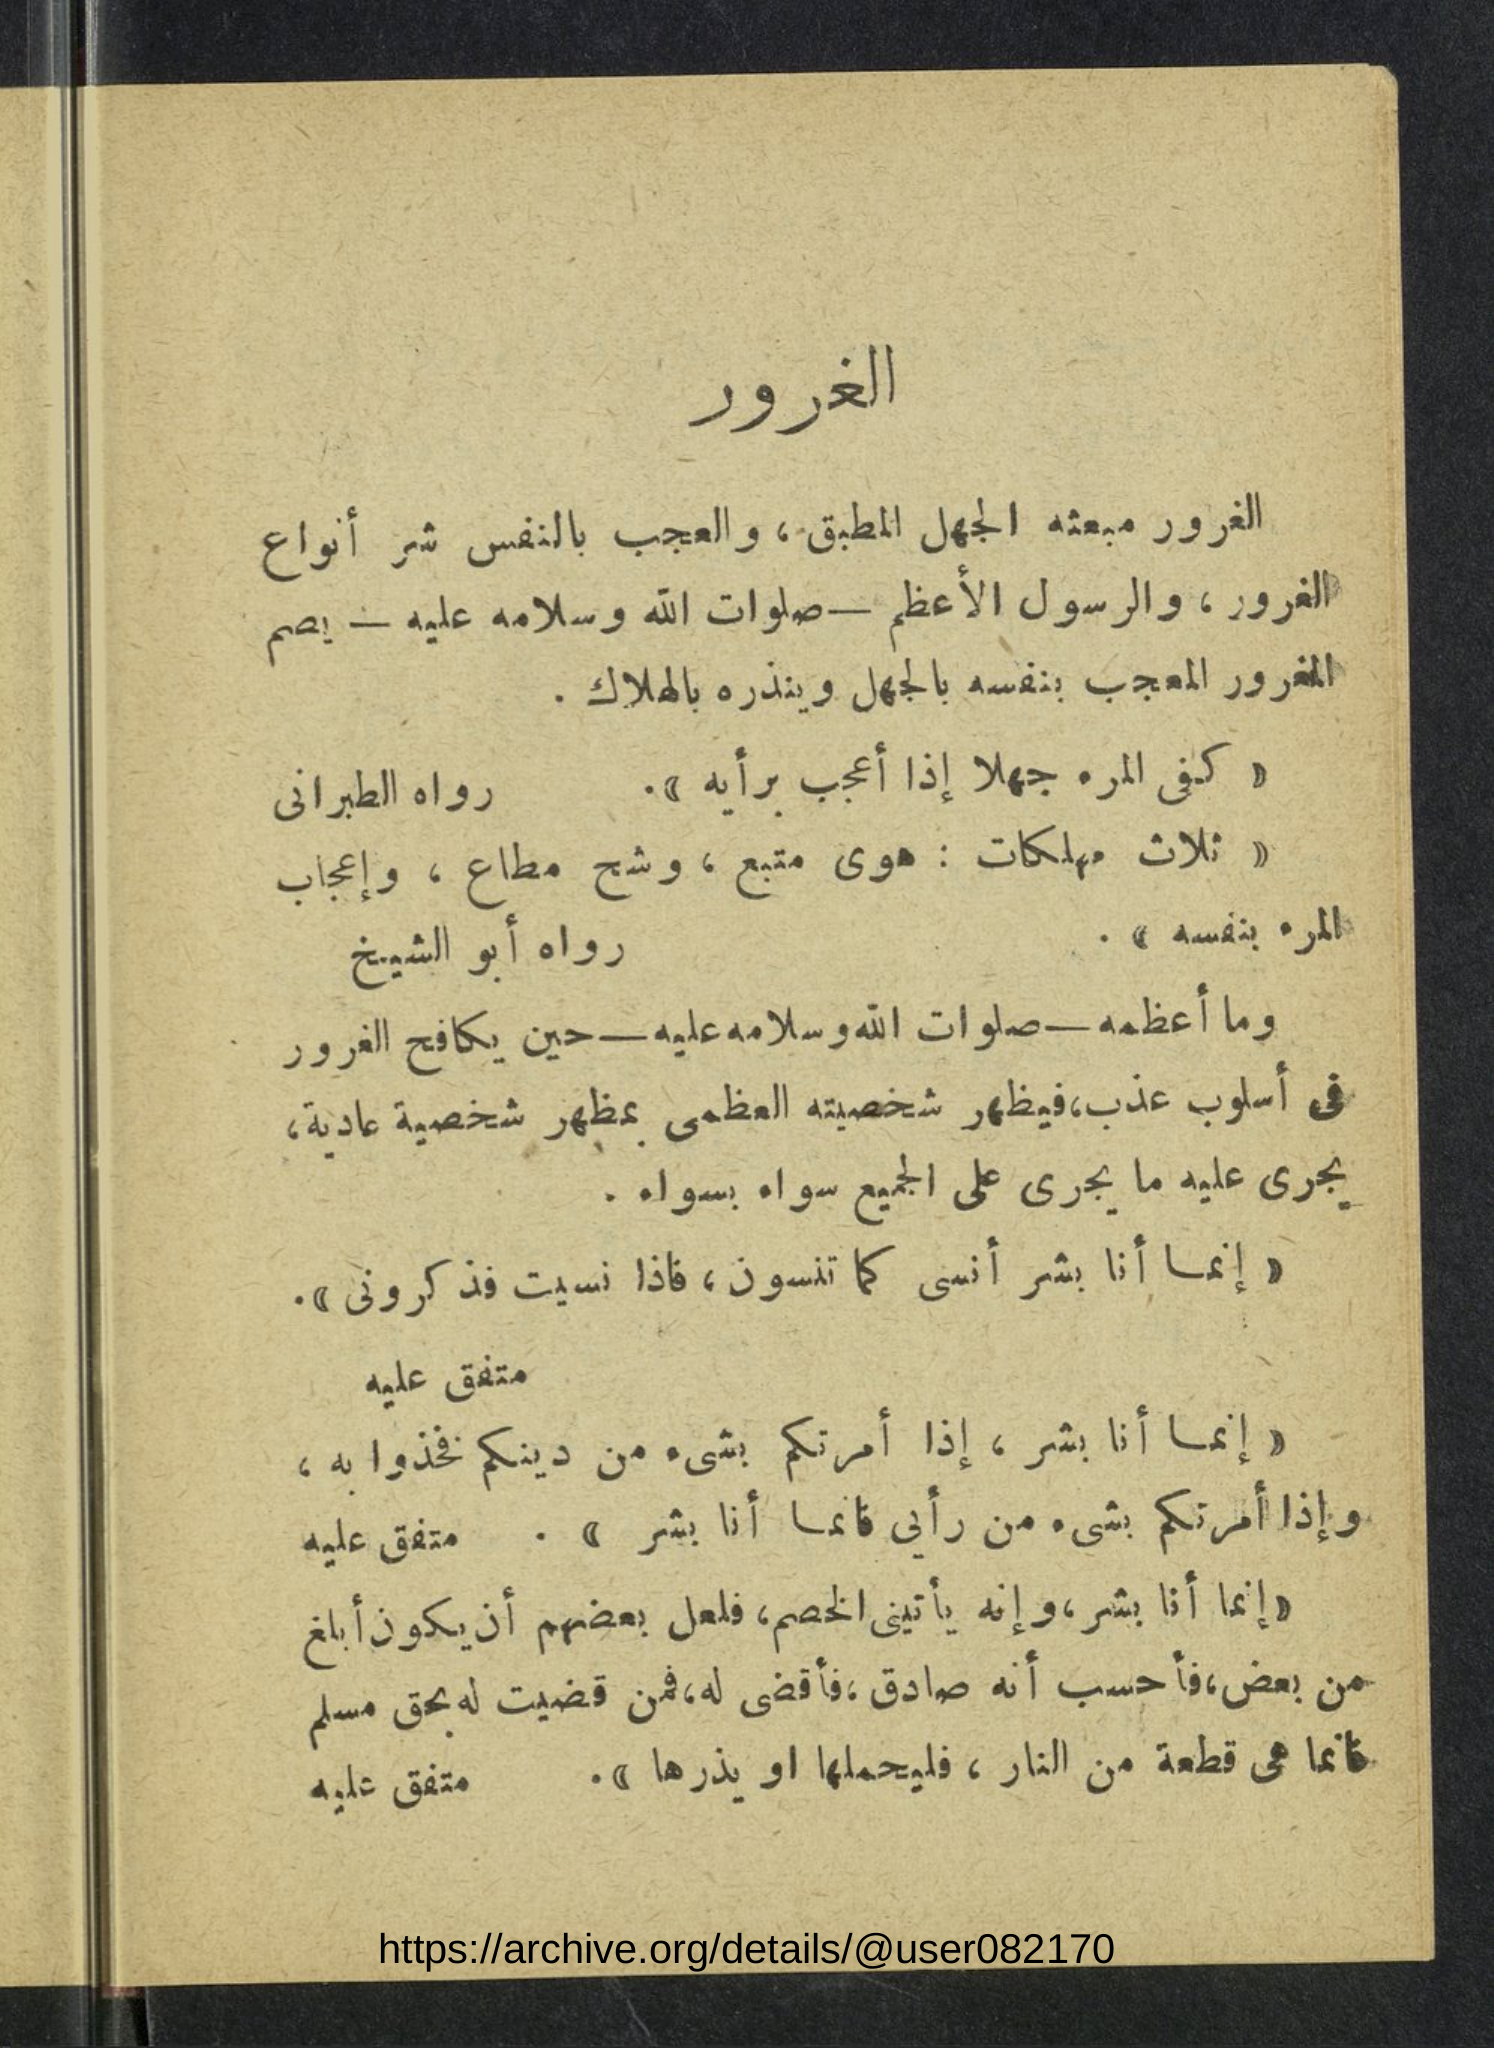 الغرور
الغرور مبعثه الجهل المطبق، والعجب بالنفس شر أنواع
الغرور، والرسول الأعظم — صلوات الله وسلامه عليه — يصم
المغرور المعجب بنفسه بالجهل وينذره بالهلاك .
« كفى المرء جهلا إذا أعجب برأيه ». رواه الطبرانى
« ثلاث مهلكات : هوى متبع ، وشح مطاع ، وإعجاب
المرء بنفسه » . رواه أبو الشيخ
وما أعظمه — صلوات الله وسلامه عليه — حين يكافح الغرور
فى أسلوب عذب، فيظهر شخصيته العظمى بمظهر شخصية عادية،
يجرى عليه ما يجرى على الجميع سواء بسواء .
« إنما أنا بشر أنسى كما تنسون ، فاذا نسيت فذكرونى ».
متفق عليه
« إنما أنا بشر ، إذا أمرتكم بشىء من دينكم فخذوا به ،
وإذا أمرتكم بشىء من رأيى فانما أنا بشر » . متفق عليه
« إنما أنا بشر، وإنه يأتينى الخصم، فلعل بعضهم أن يكون أبلغ
من بعض، فأحسب أنه صادق، فأقضى له، فمن قضيت له بحق مسلم
فانما هى قطعة من النار ، فليحملها او يذرها ». متفق عليه
https://archive.org/details/@user082170